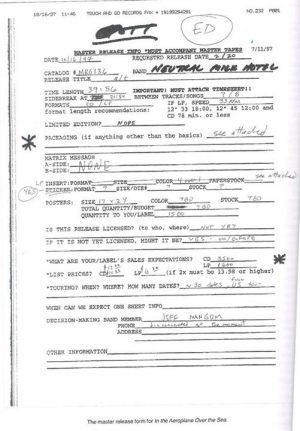 10/16/97 11:46 TOUCH AND GO RECORDS FAX → 19199294291 NO.232 P001
ED
MASTER RELEASE INFO *MUST ACCOMPANY MASTER TAPES 7/11/97
DATE 10/16/97 REQUESTED RELEASE DATE 2/20
CATALOG # MRG136 BAND NEUTRAL MILK HOTEL
RELEASE TITLE s/t
TIME LENGTH 39:56 IMPORTANT! MUST ATTACH TIMESHEET!!
SIDEBREAK AT BETWEEN TRACKS/SONGS 7/8
FORMATS CD/LP IF LP, SPEED 33
format length recommendations: 12" 33 18:00, 12" 45 12:00 and
CD 78 min. or less
LIMITED EDITION? NOPE
PACKAGING (if anything other than the basics) see attached
MATRIX MESSAGE
A-SIDE:
B-SIDE: NONE
see attached
LP INSERT:FORMAT SIZE COLOR PAPERSTOCK
YES STICKER:FORMAT ? SIZE/DIE# ? STOCK ?
POSTERS: SIZE 17 x 24 COLOR TBD STOCK TBD
TOTAL QUANTITY/BUDGET TBD
QUANTITY TO YOU/LABEL 1500
IS THIS RELEASE LICENSED? (to who, where) NOT YET
IF IT IS NOT YET LICENSED, MIGHT IT BE? YES
*WHAT ARE YOUR/LABEL'S SALES EXPECTATIONS? CD 5500
LP 1600
*LIST PRICES? CD LP (if 2x must be 13.98 or higher)
*TOURING? WHEN? WHERE? HOW MANY DATES? ~30 dates, US tour
WHEN CAN WE EXPECT ONE SHEET INFO
DECISION-MAKING BAND MEMBER JEFF MANGUM
PHONE disconnected at the moment
ADDRESS
OTHER INFORMATION
The master release form for In the Aeroplane Over the Sea.